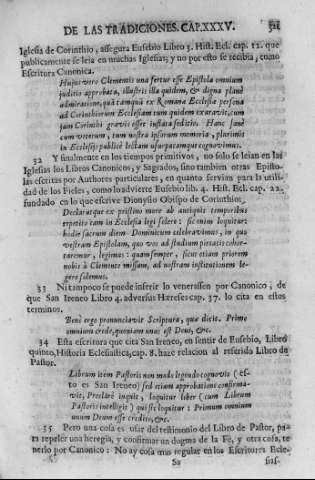 DE LAS TRADICIONES. CAP. XXXV. 521
Iglesia de Corinthio, assegura Eusebio Libro 3. Hist. Ecl. cap. 12. que
publicamente se leia en muchas Iglesias; y no por esto se recibia, como
Escritura Canonica.
Hujus vero Clementis una fertur esse Epistola omnium
juditio approbata, illustris illa quidem, & digna planè
admiratione, quã tamquã ex Romana Ecclesia persona
ad Corinthiorum Ecclesiam tum quidem exaravit, cum
jam Corinthi gravis esset instata seditio. Hanc sanè
tum veterum, tum nostra ipsorum memoria, plurimis
in Ecclesijs publicè lectam usurpatamque cognovimus.
32 Y finalmente en los tiempos primitivos, no solo se leian en las
Iglesias los Libros Canonicos, y Sagrados, sino tambien otras Episto-
las escritas por Authores particulares, en quanto servian para la utili-
dad de los Fieles, como lo advierte Eusebio lib. 4. Hist. Ecl. cap. 22.
fundado en lo que escrive Dionysio Obispo de Corinthio,
Declararque ex pristino more ab antiquis temporibus
repetito eam in Ecclesia legi solere: sic enim loquitur:
hodie sacrum diem Dominicum celebravimus, in quo
vestram Epistolam, quo vos ad studium pietatis cohor-
taremur, legimus: quam semper, sicut etiam priorem
nobis à Clemente missam, ad nostram institutionem le-
gere solemus.
33 Ni tampoco se puede inferir lo venerassen por Canonico, de
que San Ireneo Libro 4. adversus Hæreses cap. 37. lo cita en estos
terminos.
Benè ergo pronunciavit Scriptura, quæ dicit. Primo
omnium crede, quoniam unus est Deus, &c.
34 Esta escritora que cita San Ireneo, en sentir de Eusebio, Libro
quinto, Historia Eclesiastica, cap. 8. haze relacion al referida Libro de
Pastor.
Librum item Pastoris non modo legendo cognovit (es-
to es San Ireneo) sed etiam approbatione confirma-
vit, Preclarè inquit, loquitur liber (cum Librum
Pastoris intelligit) qui sic loquitur: Primum omnium
unum Deum esse credito, &c.
35 Pero una cosa es usar del testimonio del Libro de Pastor, pa-
ra repeler una heregia, y confirmar un dogma de la Fé, y otra cosa, te-
nerlo por Canonico: No ay cosa mas regular en los Escritores Ecle-
Ss sias-